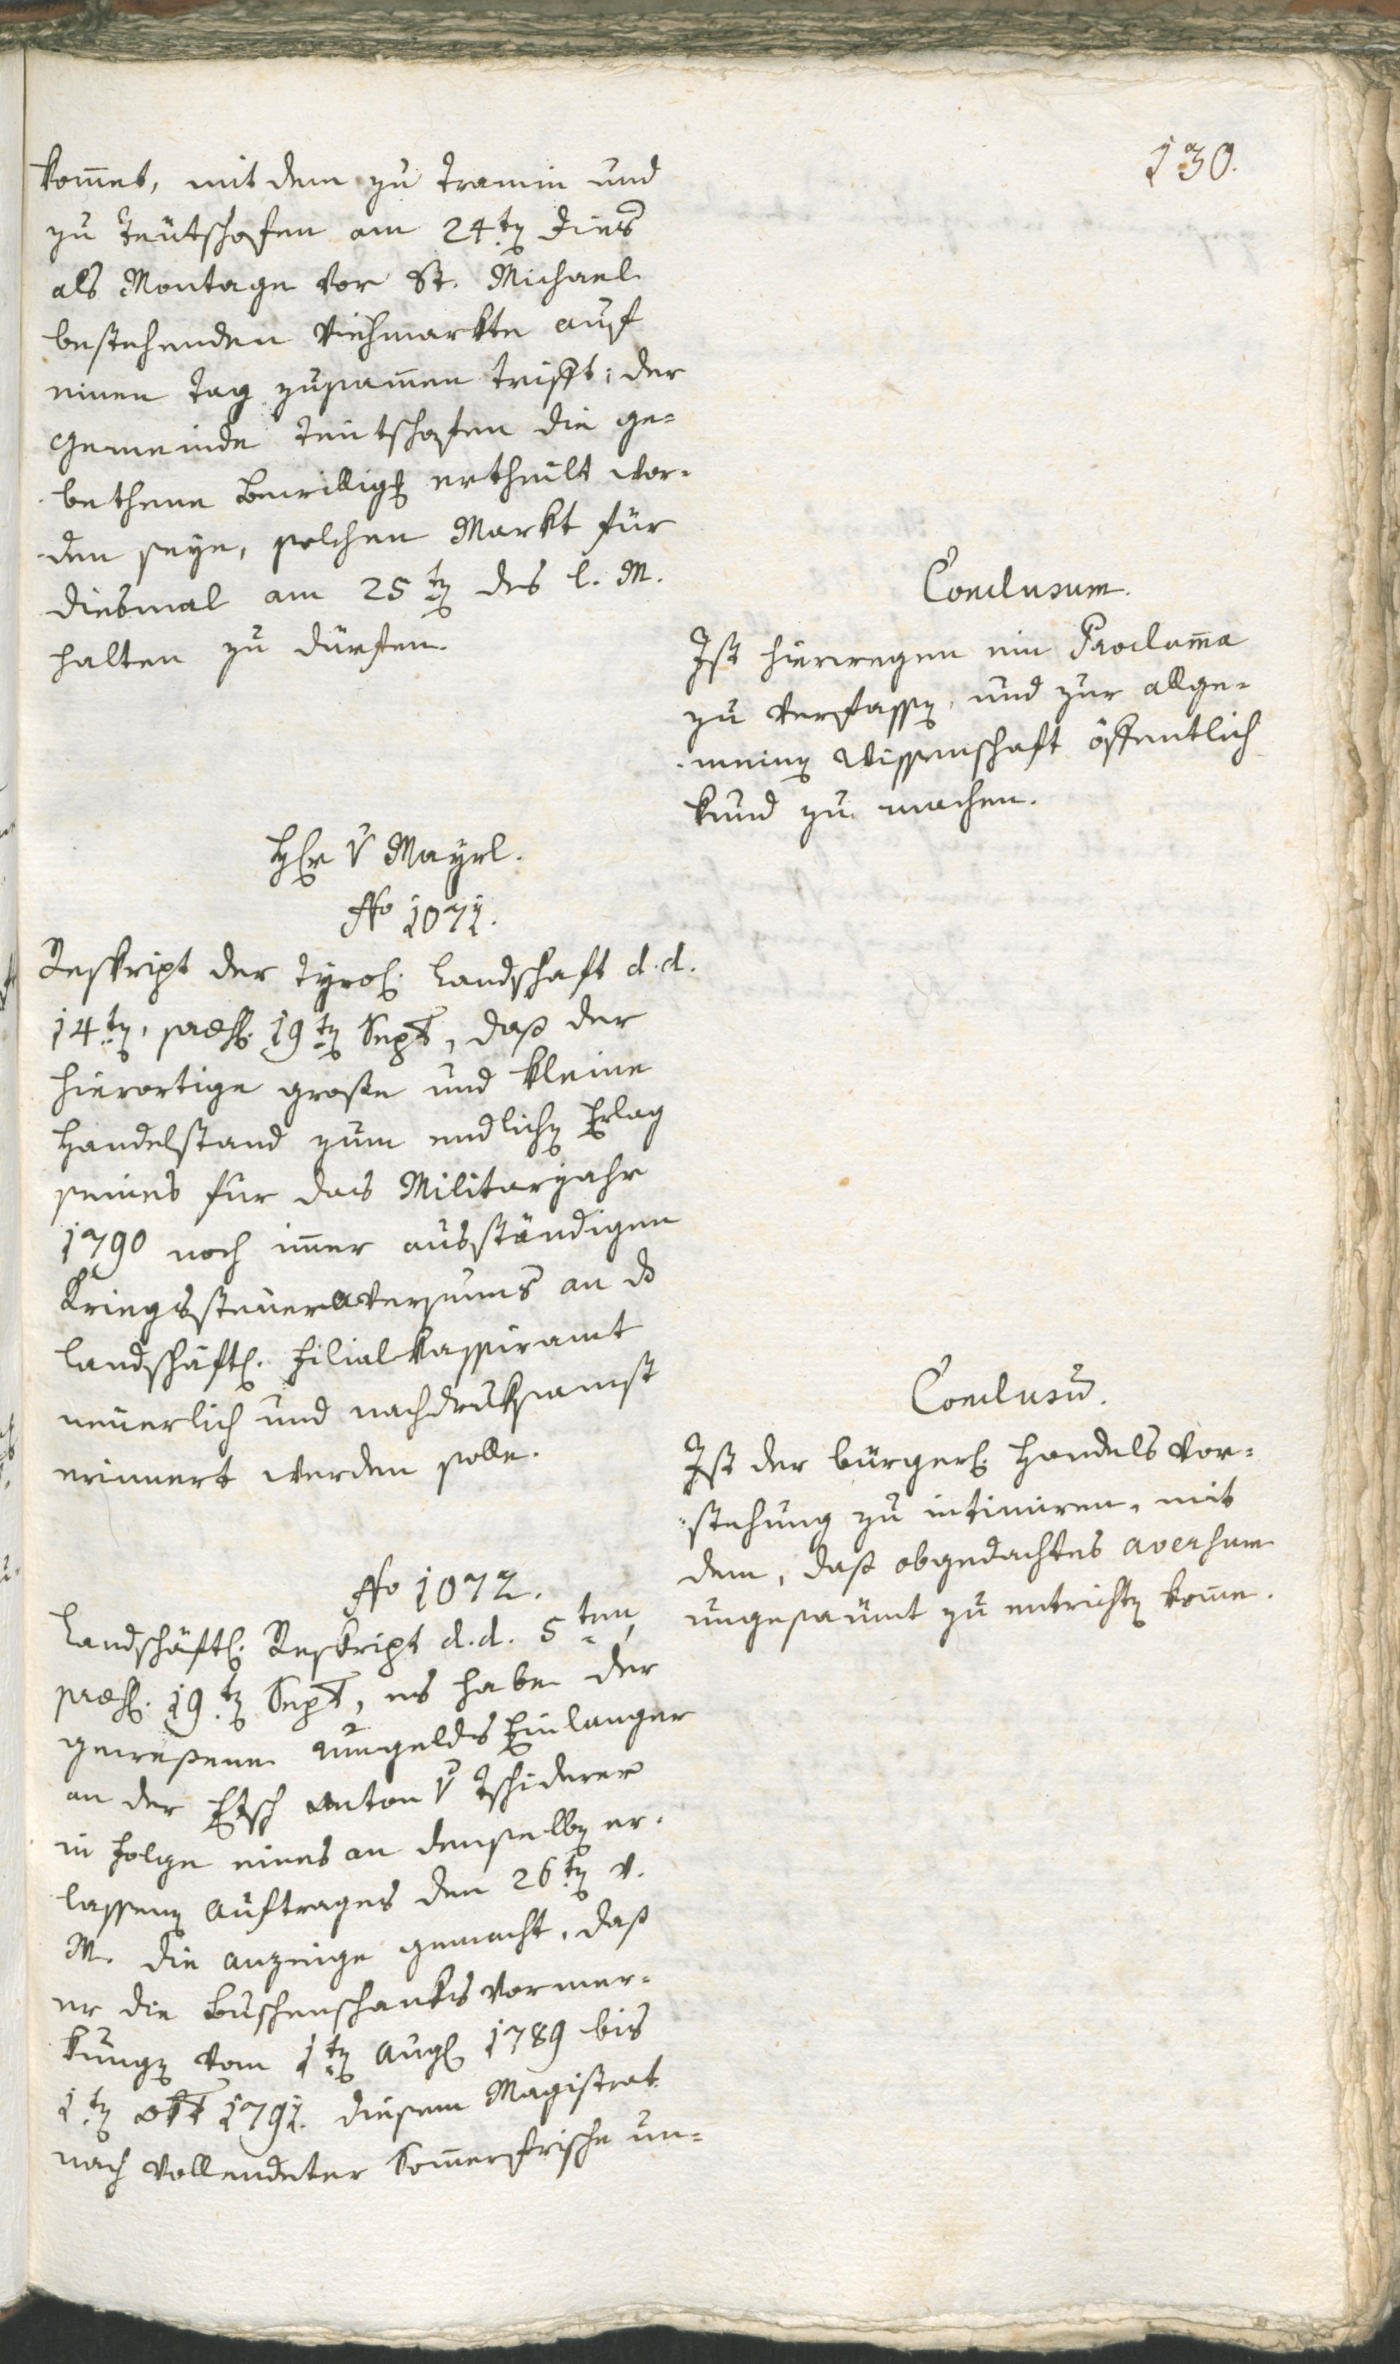 130.
kom̄et, mit dem zu Tramin und
zu Teutschofen am 24ten dies
als Montage vor St. Michael
bestehenden Viehmarkte auf
einen Tag zusam̄en trifft; der
Gemeinde Teutschofen die ge-
bethene Bewilligg ertheilt wor-
den seye, solchen Markt für
diesmal am 25ten des l. M.
halten zu dürfen.
Conclusum.
Ist hierwegen ein Proclam̄a
zu verfassen, und zur allge-
meinen Wissenschaft öffentlich
kund zu machen.
Hr v Mayrl.
No 1071.
Reskript der Tyrol. Landschaft d. d.
14ten, præs. 19ten Sept, daß der
hierortige große und kleine
Handelstand zum endlichen Erlag
seines für das Militarjahr
1790 noch im̄er ausständigen
Kriegssteueraversums an d
landschäftl. Filialkassieramt
neuerlich und nachdruksamst
erinnert werden solle.
Conclusū.
Ist der bürgerl. Handelsvor-
stehung zu intimiren, mit
dem, daß obgedachtes aversum
ungesaumt zu entrichten kom̄e.
No 1072.
Landschäftl. Reskript d. d. 5ten,
præs. 19ten Sept, es habe der
gewesene Umgelds Einlanger
an der Etsch Anton v Tschiderer
in Folge eines an denselben er-
lassenen Auftrages den 26ten v.
M. die Anzeige gemacht, daß
er die Buschenschanksvormer-
kungen vom 1ten Aug 1789 bis
1ten Okt 1791. diesem Magistrat
nach vollendeter Som̄erfrische un-